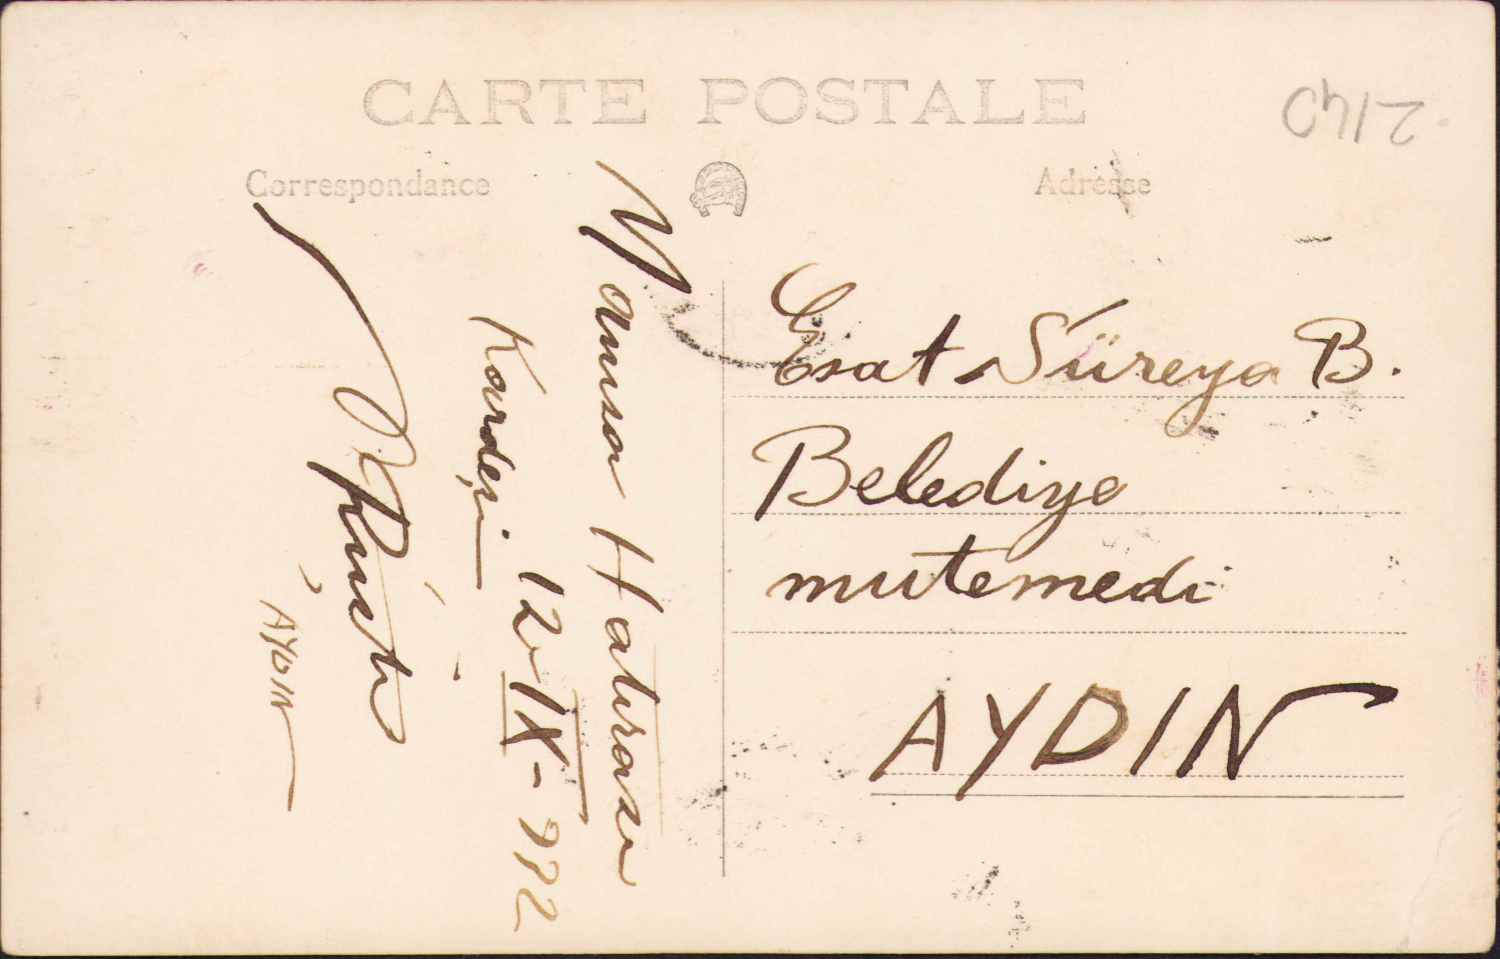 CARTE POSTALE
Correspondance
Adresse
2140
Hatırası
Kardeşin
12-IX-932
Rüştü
AYDIN
Esat Süreya B.
Belediye
mutemedi
AYDIN